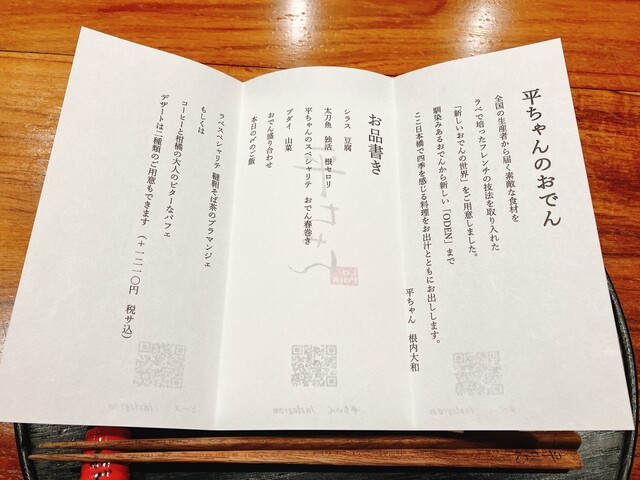 平ちゃんのおでん
全国の生産者から届く素敵な食材を
ラペで培ったフレンチの技法を取り入れた
「新しいおでんの世界」をご用意しました。
馴染みあるおでんから新しい「ODEN」まで
ここ日本橋で四季を感じる料理をお出汁とともにお出しします。
平ちゃん 根内大和
お品書き
シラス 豆腐
太刀魚 独活 根セロリ
平ちゃんのスペシャリテ おでん春巻き
ブダイ 山菜
おでん盛り合わせ
本日の〆のご飯
ラペスペシャリテ 韃靼そば茶のブラマンジェ
もしくは
コーヒーと柑橘の大人のビターなパフェ
デザートは二種類のご用意もできます (+一二一〇円 税サ込)
平ちゃん
平ちゃん Instagram
Instagram
Instagram